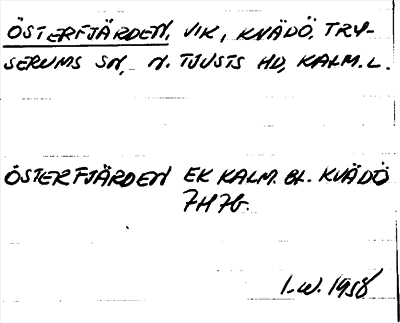 ÖSTERFJÄRDEN, VIK, KVÄDÖ, TRY-
SERUMS SN, N. TJUSTS HD, KALM. L.
ÖSTERFJÄRDEN EK KALM. BL. KVÄDÖ
7H7G.
I.W. 1958